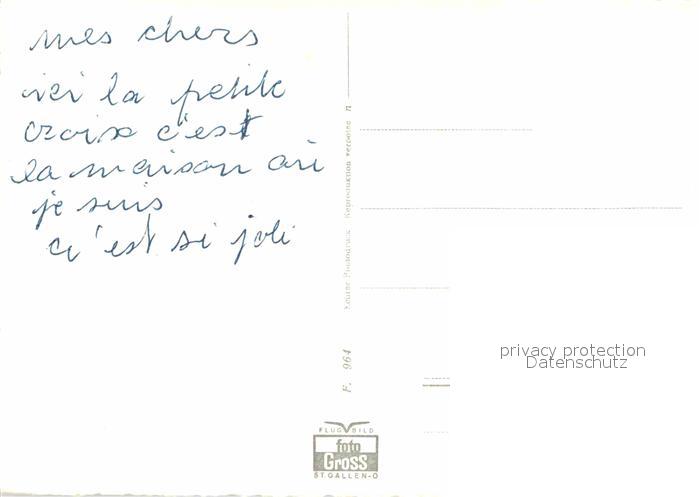 mes chers
ici la petite
croix c'est
la maison où
je suis
c'est si joli
Reproduktion verboten
F. 964
FLUGBILD
foto
Gross
ST. GALLEN-O
privacy protection
Datenschutz